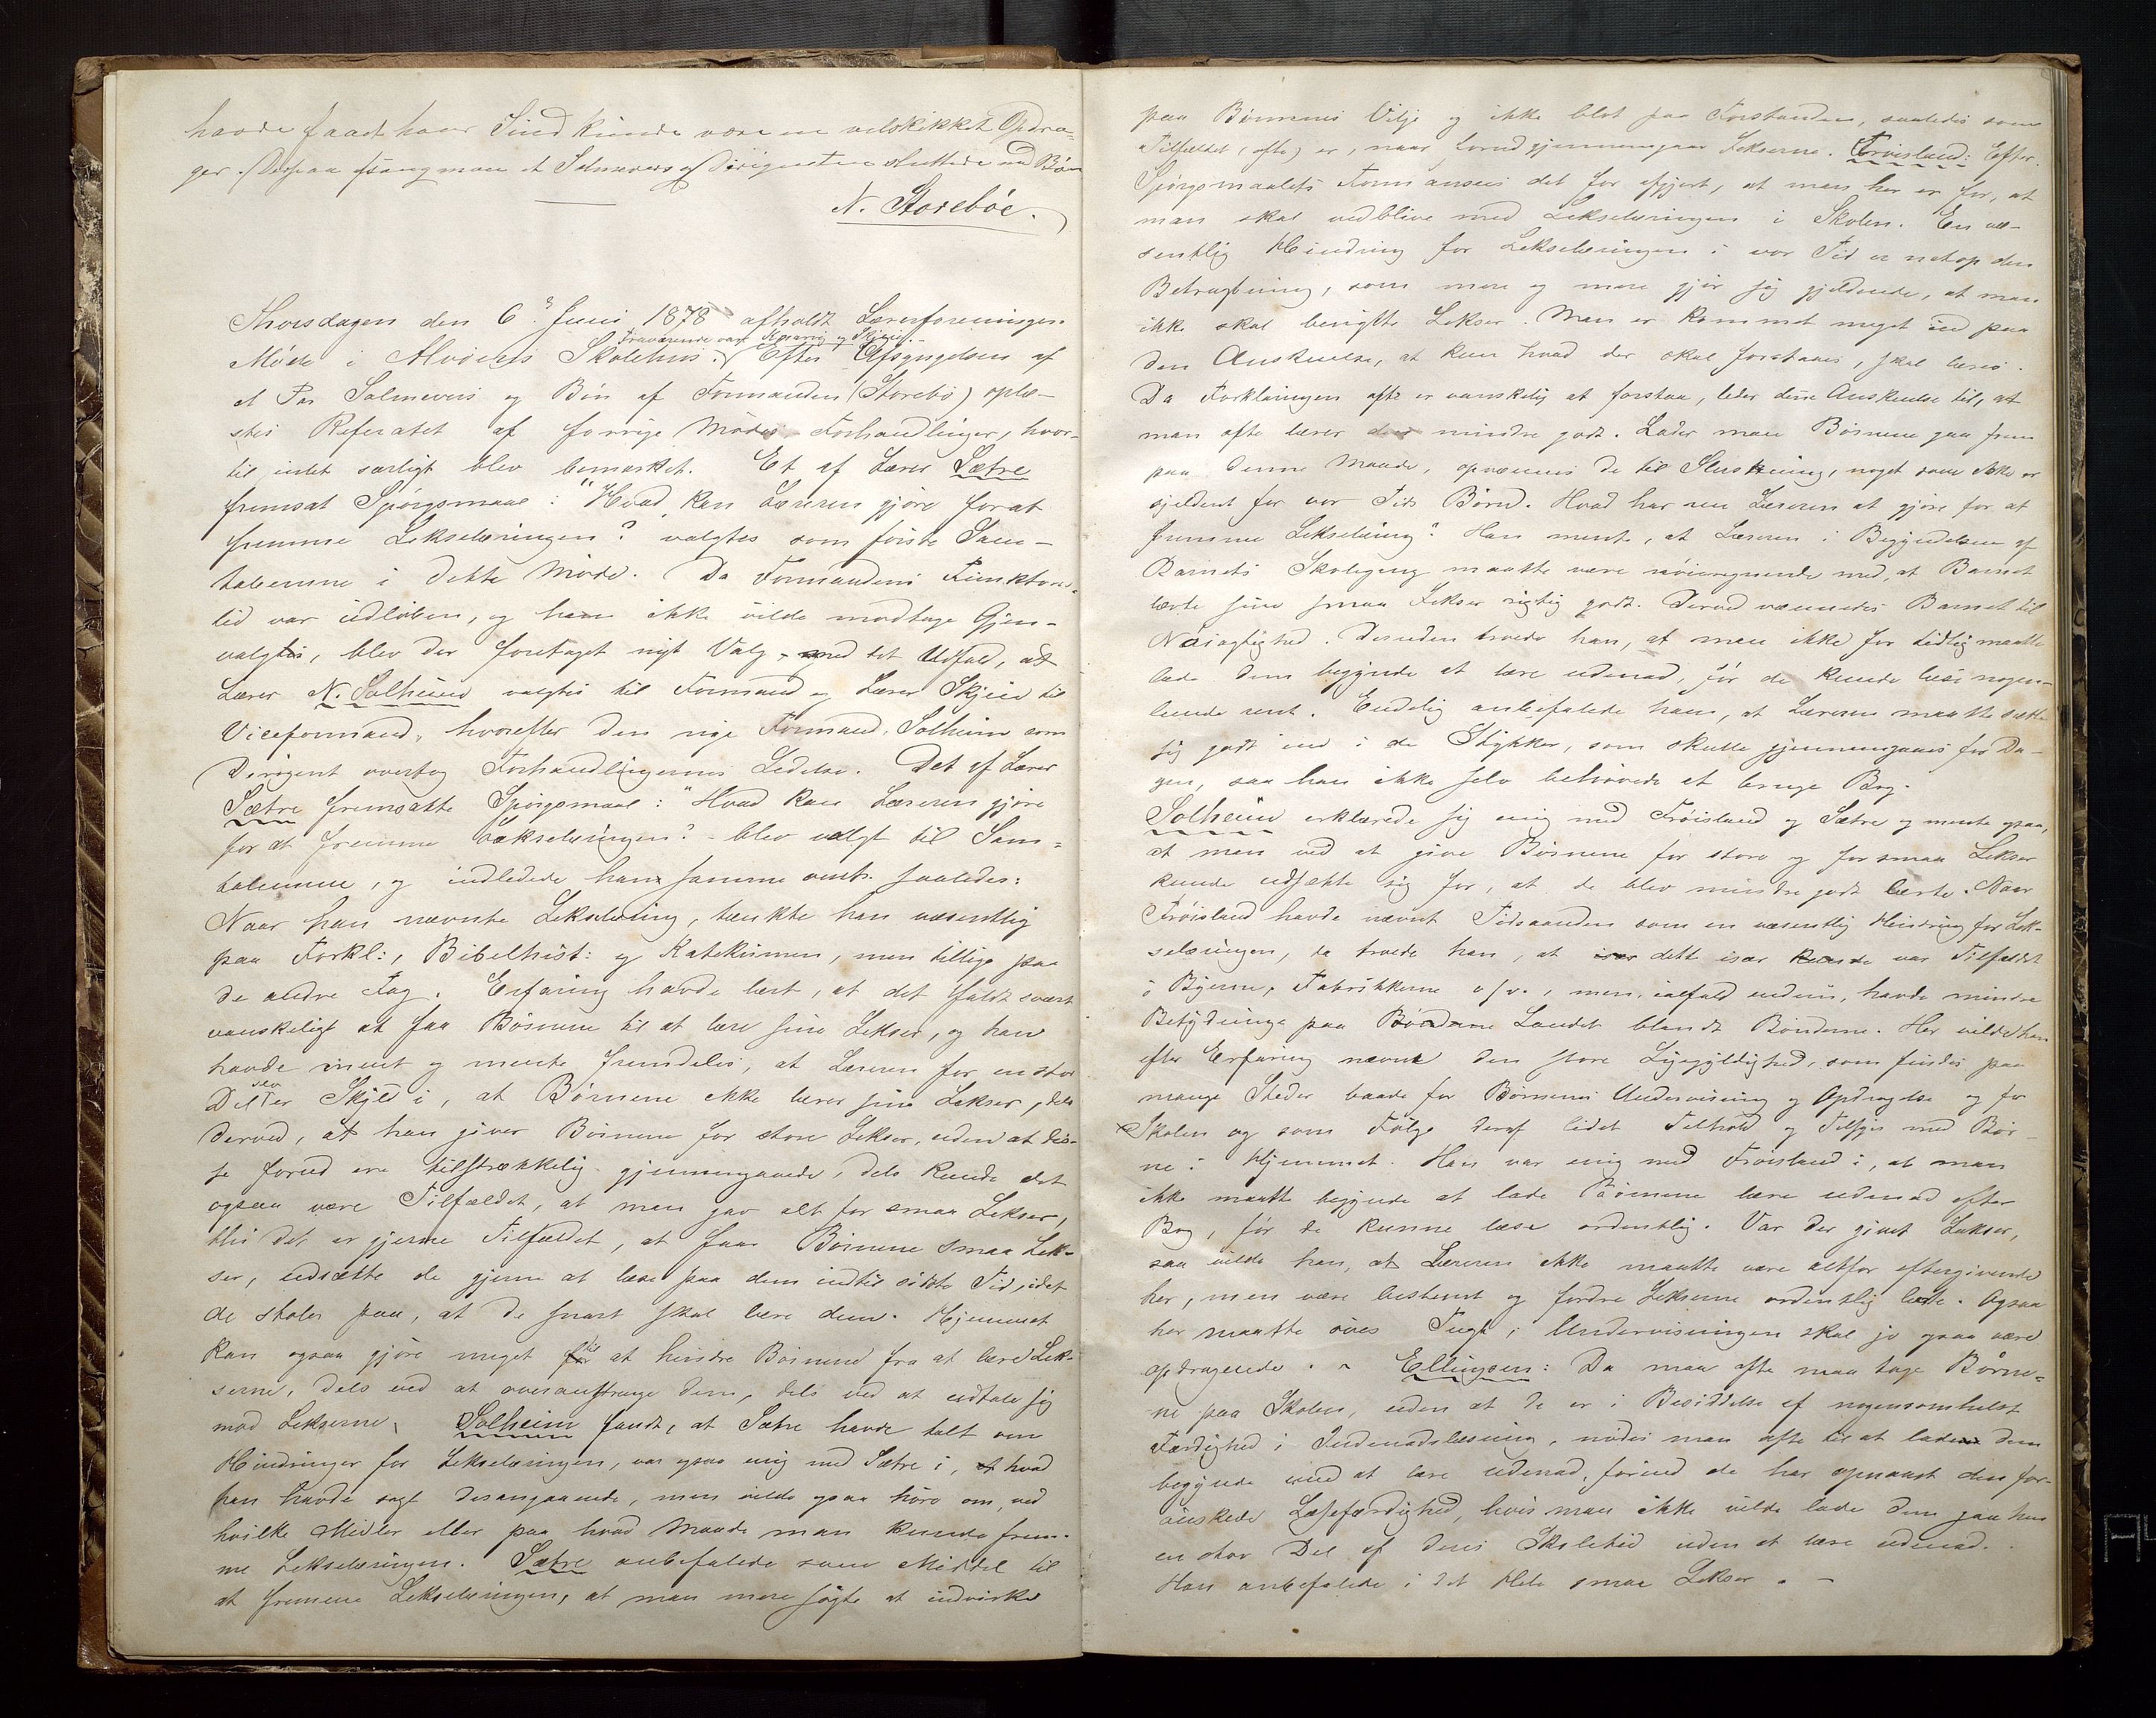 havde faaet hans Sind kunde være en velskikket Opdra-
ger. Derpaa sang man et Salmevers og Dirigenten sluttede med Bøn
N. Storebøe.
Thorsdagen den 6.te Juni 1878 afholdt Lærerforeningen
Fraværende var og Skjeie.
Møde i Alvøens Skolehus. Efter Afsyngelsen af
et Par Salmevers og Bøn af Formanden (Storebø) oplæ-
stes Referatet af forrige Mødes Forhandlinger, hvor-
til intet særligt blev bemærket. Et af Lærer Sætre
fremsat Spørgsmaal: "Hvad kan Læreren gjøre forat
fremme Lekselæringen? valgtes som første Sam-
taleemne i dette Møde. Da Formandens Funktions-
tid var udløben, og han ikke vilde modtage Gjen-
valgtes, blev der foretaget nyt Valg, med det Udfald, at
Lærer N. Solheim valgtes til Formand og Lærer Skjeie til
Viceformand, hvorefter den nye Formand, Solheim som
Dirigent overtog Forhandlingernes Ledelse. Det af Lærer
Sætre fremsatte Spørgsmaal: "Hvad kan Læreren gjøre
for at fremme Lækselæringen? - blev valgt til Sam-
taleemne, og indledede han samme omtr. saaledes:
Naar han nævnte Lekselæring, tænkte han væsentlig
paa Forkl:, Bibelhist: og Katekismen, men tillige paa
de andre Fag. Erfaring havde lært, at det faldt svært
vanskeligt at faa Børnene til at lære sine Lekser, og han
havde ment og mente fremdeles, at Læreren for en stor
Del selv er Skyld i, at Børnene ikke lærer sine Lekser, dels
derved, at han giver Børnene for store Lekser, uden at dis-
se forud ere tilstrækkelig gjennemgaaede, dels kunde det
ogsaa være Tilfældet, at man gav alt for smaa Lekser,
thi det er gjerne Tilfældet, at faar Børnene smaa Lek-
ser, udsætte de gjerne at læse paa dem indtil sidste Tid, idet
de stoler paa, at de snart skal lære dem. Hjemmet
kan ogsaa gjøre meget for til at hindre Børnene fra at lære Lek-
serne, dels ved at overanstrenge dem, dels ved at udtale sig
mod Lekserne. Solheim fandt, at Sætre havde talt om
Hindringer for Lekselæringen, var ogsaa enig med Sætre i, at hvad
han havde sagt desangaaende, men vilde ogsaa høre om, ved
hvilke Midler eller paa hvad Maade man kunde frem-
me Lekselæringen. Sætre anbefalede som Middel til
at fremme Lekselæringen, at man mere søgte at indvirke
paa Børnenes Vilje og ikke blot paa Forstanden, saaledes som
Tilfældet (ofte) er, naar gjennemgaar Lekserne. Frøisland: Efter
Spørgsmaalets Form ansees det for afgjort, at man her er for, at
man skal vedblive med Lekselæringen i Skolen. En væ-
sentlig Hindring for Lekselæringen i vor Tid er netop den
Betragtning, som mere og mere gjør sig gjeldende, at man
ikke skal benytte Lekser. Man er kommet meget ind paa
den Anskuelse, at kun hvad der skal forstaaes, skal læres.
Da Forklaringen ofte er vanskelig at forstaa, leder denne Anskuelse til, at
man ofte lærer den mindre godt. Lader man Børnene gaa frem
paa denne Maade, opvænnes de til Sluskning, noget som ikke er
sjeldent for vor Tids Børn. Hvad har nu Læreren at gjøre for at
fremme Lekselæring? Han mente, at Læreren i Begyndelsen af
Barnets Skolegang maatte være nøieregnende med, at Barnet
lærte sine smaa Lekser rigtig godt. Derved vænnedes Barnet til
Nøiagtighed. Desuden troede han, at man ikke for tidlig maatte
lade dem begynde at lære udenad, før de kunde læse nogen-
lunde rent. Endelig anbefalede han, at Læreren maatte sætte
sig godt ind i de Stykker, som skulle gjennemgaaes for Da-
gen, saa han ikke selv behøvede at bruge Bog.
Solheim erklærede sig enig med Frøisland og Sætre og mente ogsaa,
at man ved at give Børnene for store og for smaa Lekser
kunde udsætte sig for, at de blev mindre godt lærte. Naar
Frøisland havde nævnt Tidsaanden som en væsentlig Hindring for Lek-
selæringen, da troede han, at især dette især kunde var Tilfældet
i Byerne, Fabrikkerne o.s.v., men, ialfald endnu, havde mindre
Betydning paa Børderne Landet blandt Bønderne. Her vilde han
efter Erfaring nævne den store Ligegyldighed, som findes paa
mange Steder baade for Børnenes Undervisning og Opdragelse og for
Skolen og som Følge deraf lidet Tilhold og Tilsyn med Bør-
ne i Hjemmet. Han var enig med Frøisland i, at man
ikke maatte begynde at lade Børnene lære udenad efter
Bog, før de kunne læse ordentlig. Var der givet Lekser,
saa vilde han, at Læreren ikke maatte være altfor eftergivende
her, men være bestemt og fordre Lekserne ordentlig lærte. Ogsaa
her maatte øves Tugt, Undervisningen skal jo ogsaa være
opdragende. - Ellingsen: Da man ofte maa tage Børne-
ne paa Skolen, uden at de er i Besiddelse af nogensomhelst
Færdighed i Indenadslæsning, nødes man ofte til at lade dem
begynde med at lære udenad, førend de har opnaaet den for-
ønskede Læsefærdighed, hvis man ikke vilde lade dem gaa hen
en stor Del af deres Skoletid uden at lære udenad.
Han anbefalede i det Hele smaa Lekser. -